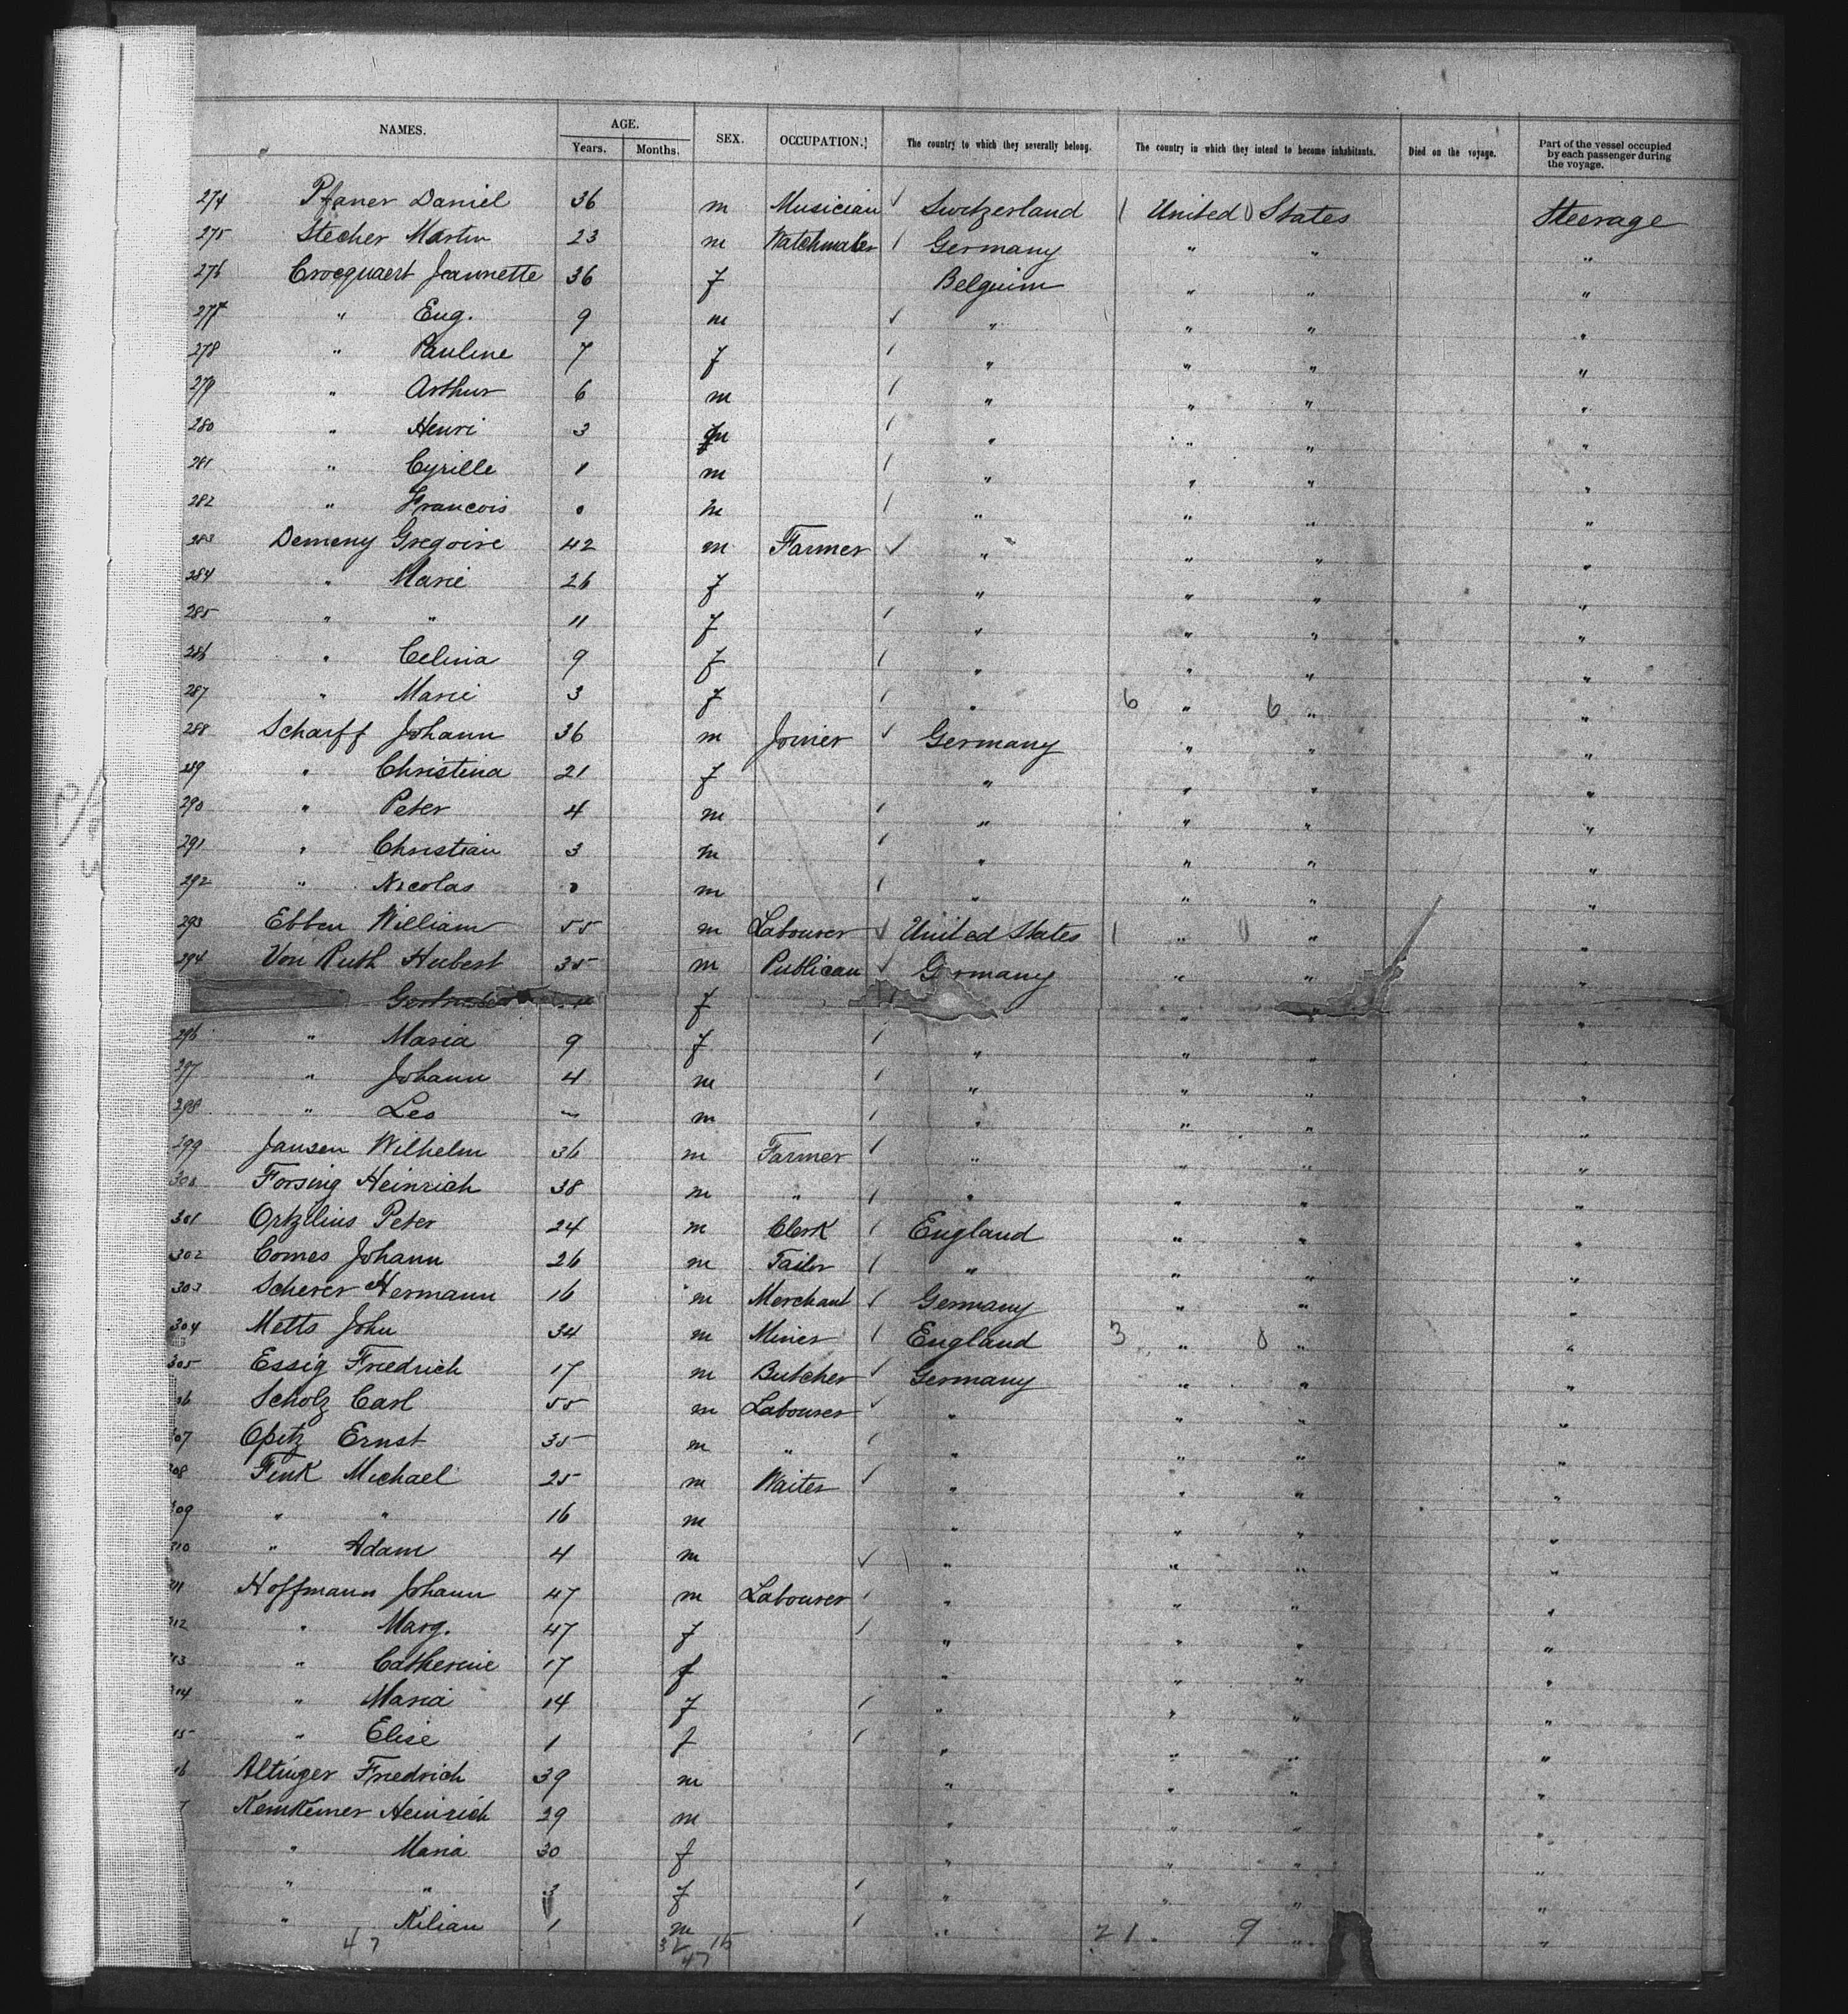 NAMES. AGE. Years. Months. SEX. OCCUPATION. The country to which they severally belong. The country in which they intend to become inhabitants. Died on the voyage. Part of the vessel occupied by each passenger during the voyage.
274 Pfaner Daniel 36 m Musician Switzerland 1 United 0 States Steerage
275 Stecher Martin 23 m Watchmaker Germany " " "
276 Crocquaert Jeannette 36 f Belguim " " "
277 " Eug. 9 m " " " "
278 " Pauline 7 f " " " "
279 " Arthur 6 m " " " "
280 " Henri 3 m " " " "
281 " Cyrille 1 m " " " "
282 " Francois 0 m " " " "
283 Demeny Gregoire 42 m Farmer " " " "
284 " Marie 26 f " " " "
285 " " 11 f " " " "
286 " Celina 9 f " " " "
287 " Marie 3 f " 6 " 6 " "
288 Scharff Johann 36 m Joiner Germany " " "
289 " Christina 21 f " " " "
290 " Peter 4 m " " " "
291 " Christian 3 m " " " "
292 " Nicolas 0 m " " " "
293 Ebben William 55 m Labourer United States 1 " 0 " "
294 Von Ruth Hubert 35 m Publican Germany " " "
f " "
296 " Maria 9 f " " " "
297 " Johann 4 m " " " "
298 " Leo m " " " "
299 Jansen Wilhelm 36 m Farmer " " " "
300 Forsing Heinrich 38 m " " " " "
301 Ortzlius Peter 24 m Clerk England " " "
302 Comes Johann 26 m Tailor " " " "
303 Scherer Hermann 16 m Merchant Germany " " "
304 Metts John 34 m Miner England 3 " 0 " "
305 Essig Friedrich 17 m Butcher Germany " " "
06 Scholz Carl 55 m Labourer " " " "
307 Opitz Ernst 35 m " " " " "
308 Fink Michael 25 m Waiter " " " "
309 " " 16 m " " " "
310 " Adam 4 m " " " "
311 Hoffmann Johann 47 m Labourer " " " "
312 " Marg. 47 f " " " "
13 " Catherine 17 f " " " "
14 " Maria 14 f " " " "
15 " Elise 1 f " " " "
16 Altinger Friedrich 39 m " " " "
7 Kemkemer Heinrich 29 m " " " "
" Maria 30 f " " " "
" " 3 f " " " "
" Kilian 1 m " 21 " 9 " "
47 32 15
47